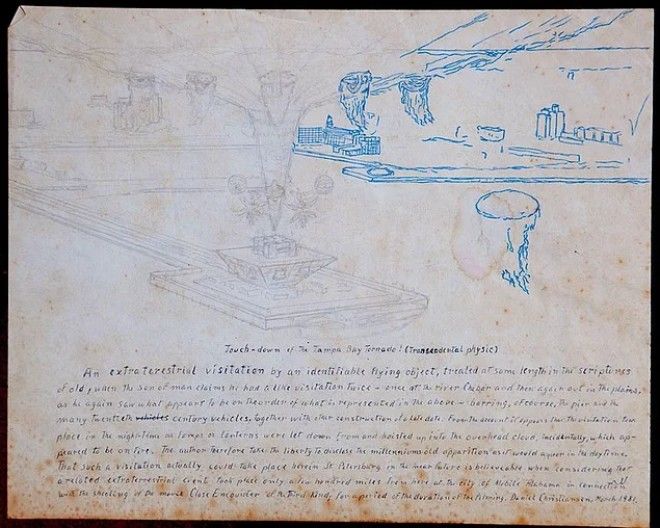 Touch-down of the Tampa Bay Tornado! (Transendental physic)
An extraterestrial visitation by an identifiable flying object, treated at some length in the scriptures
of old, when the son of man claims he had a like visitation twice — once at the river Chebar and then again out in the plains,
as he again saw what appears to be on the order of what is represented in the above — barring, of course, the pier and the
many twentieth vehicles century vehicles, together with other construction of a late date. From the account it appears that the visitation took
place in the night-time as lamps or lanterns were let down from and hoisted up into the overhead cloud, incidentally, which ap-
peared to be on fire. The author therefore take the liberty to disclose the millenniums old apparition as it would appear in the daytime.
That such a visitation actually could take place here in St Petersburg in the near future is believeable when considering that
a related extraterestrial event took place only a few hundred miles from here at the city of Mobile Alabama in connection
with the shooting of the movie Close Encounder of the Third Kind, for a period of the duration of the filming. Daniel Christiansen, March 1981.